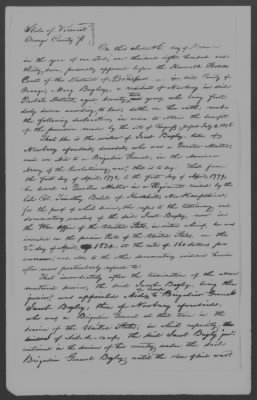 State of Vermont
Orange County ss
On this eleventh day of
in the year of our Lord, one thousand eight hundred and
thirty, personally appeared before the Honorable Probate
Court of the District of Bradford in said County of
Orange, Mary Bayley, a resident of Newbury in said
Probate District, aged seventy years, who being first
duly sworn according to law, doth, on her oath, make
the following declaration, in order to obtain the benefit
of the provision made by the act of Congress passed July 4, 1836.
That she is the widow of Jacob Bayley, late of
Newbury aforesaid, deceased, who was a Quarter Master,
and an Aid to a Brigadier General, in the American
Army of the Revolutionary war; that is to say: That from
the first day of April, 1778, to the first day of April, 1779,
he served as Quarter Master in a Regiment commanded by the
late Col. Timothy Bedel of Haverhill, New Hampshire,
for the proof of which service, she refers to the testimony and
documentary evidence of the said Jacob Bayley, now in
the War Office of the United States, in virtue of which he was
inscribed on the pension Roll of the United States, on the
day of April, 1834, at the rate of 160 dollars per
annum; and also to the other documentary evidence herein
after more particularly referred to.
That immediately after the termination of the above
mentioned service, the said Jacob Bayley, being then
junior, was appointed Aid to Brigadier General
Jacob Bayley, then of Newbury aforesaid,
who was a Brigadier General at that time in the
service of the United States, in which capacity,
of Aid-de-camp, the said Jacob Bayley junior
continued in the service of his country under the said
Brigadier General Bayley, until the close of said war